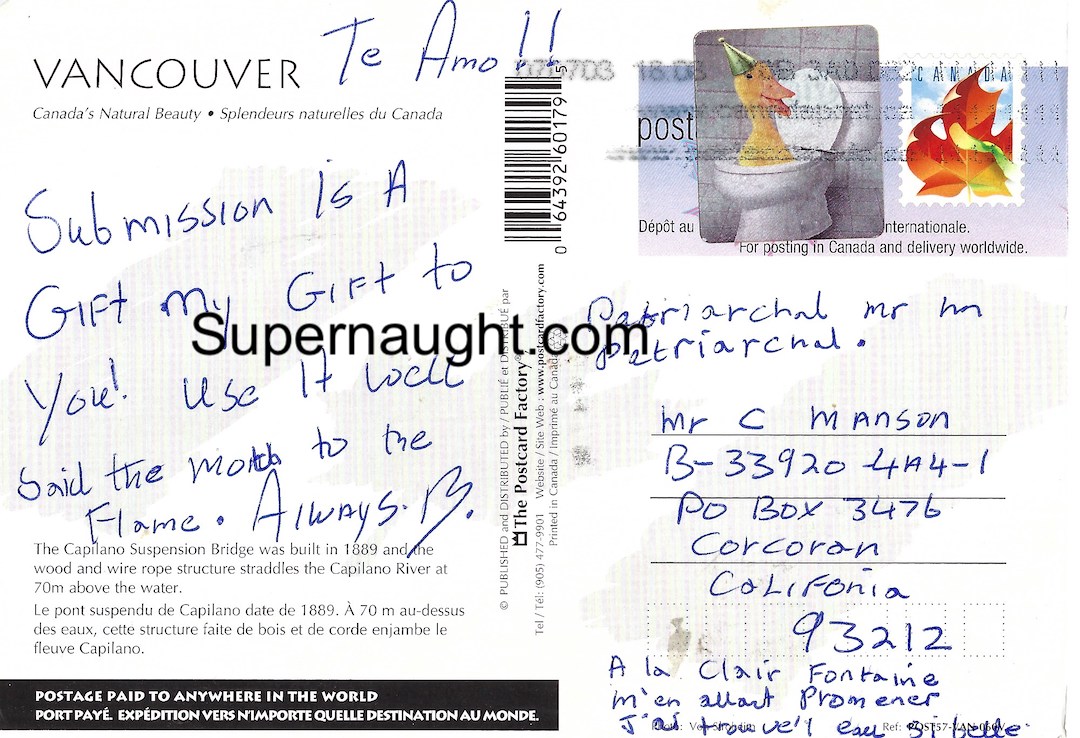 Te Amo!!
VANCOUVER
Canada's Natural Beauty • Splendeurs naturelles du Canada
Submission Is A
Gift my Gift to
You! Use It well
Said the Moth to the
Flame. Always. B.
The Capilano Suspension Bridge was built in 1889 and the
wood and wire rope structure straddles the Capilano River at
70m above the water.
Le pont suspendu de Capilano date de 1889. À 70 m au-dessus
des eaux, cette structure faite de bois et de corde enjambe le
fleuve Capilano.
POSTAGE PAID TO ANYWHERE IN THE WORLD
PORT PAYÉ. EXPÉDITION VERS N'IMPORTE QUELLE DESTINATION AU MONDE.
Supernaught.com
0 64392 60179 5
© PUBLISHED and DISTRIBUTED by / PUBLIÉ et DISTRIBUÉ par
The Postcard Factory®
Tel / Tél: (905) 477-9901 Website / Site Web : www.postcardfactory.com
Printed in Canada / Imprimé au Canada
CANADA
post
Dépôt au nternationale.
For posting in Canada and delivery worldwide.
Patriarchal mr m
Patriarchal.
Mr C MANSON
B-33920 4A4-1
PO Box 3476
Corcoran
CALIFonia
93212
A la Clair Fontaine
m'en allant Promener
J'ai trouve'l eau si belle
Ref: